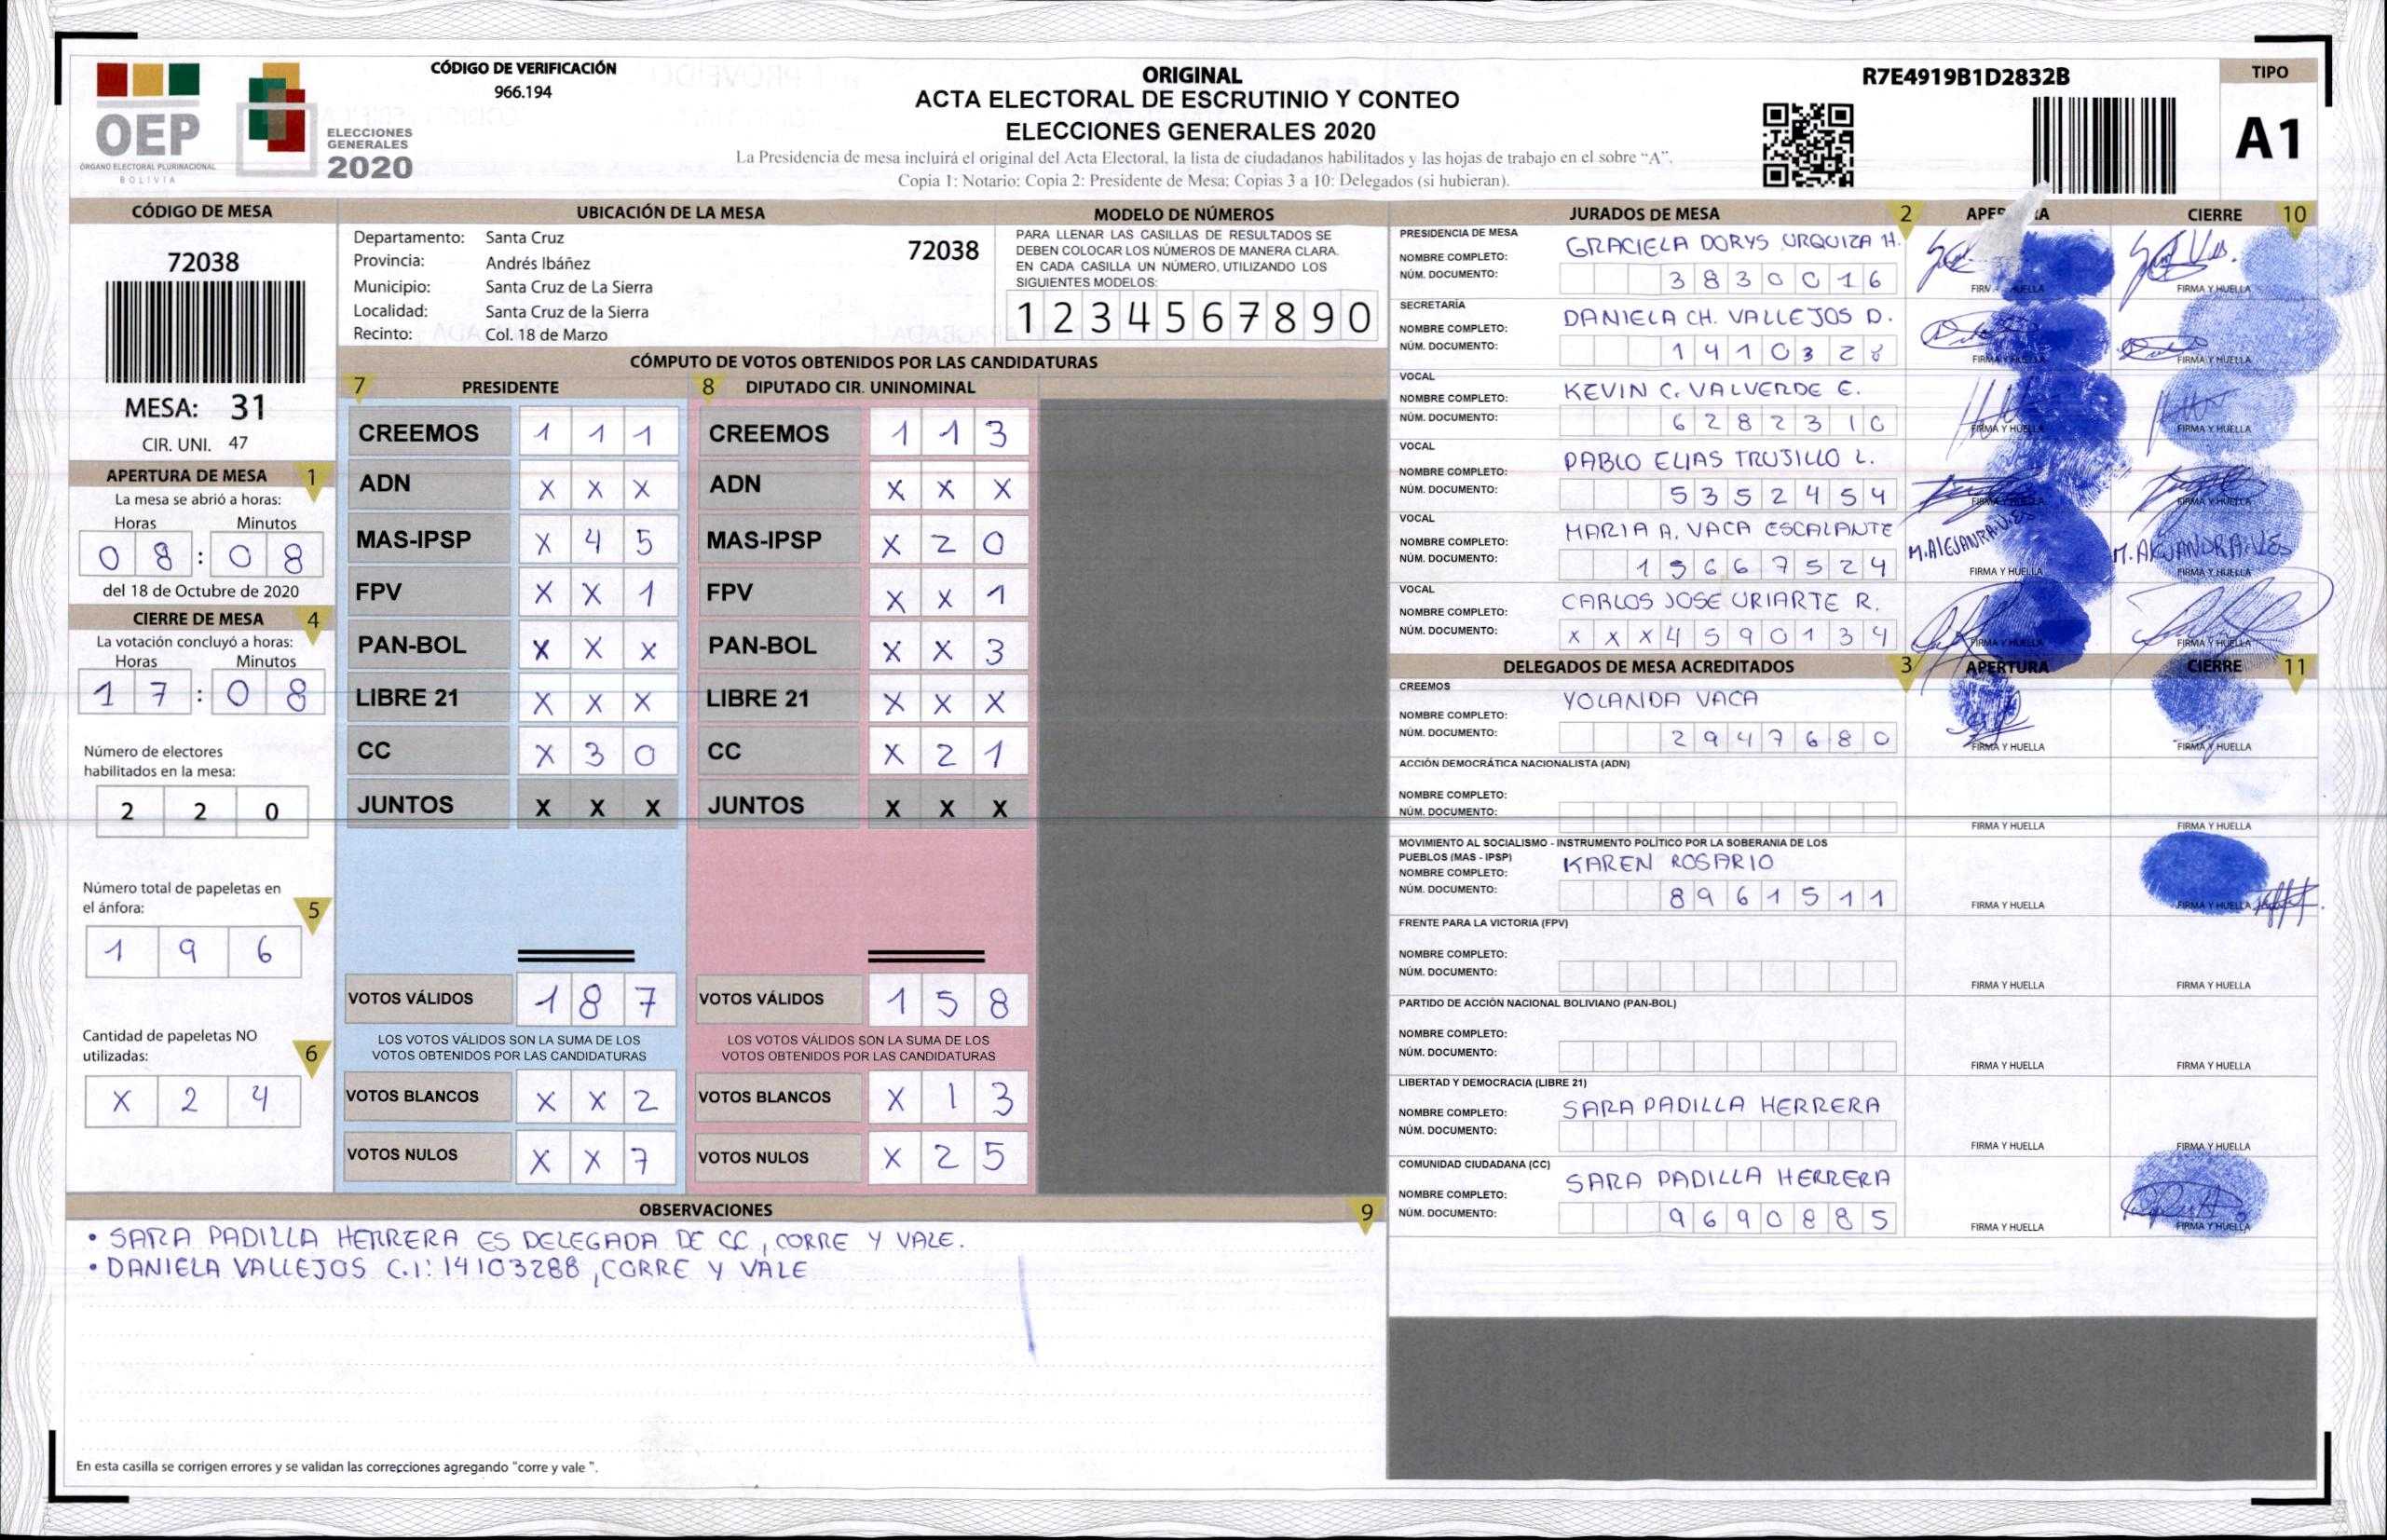 CÓDIGO DE VERIFICACIÓN
966.194
OEP
ÓRGANO ELECTORAL PLURINACIONAL
BOLIVIA
ELECCIONES
GENERALES
2020
ORIGINAL
ACTA ELECTORAL DE ESCRUTINIO Y CONTEO
ELECCIONES GENERALES 2020
La Presidencia de mesa incluirá el original del Acta Electoral, la lista de ciudadanos habilitados y las hojas de trabajo en el sobre “A”.
Copia 1: Notario: Copia 2: Presidente de Mesa; Copias 3 a 10: Delegados (si hubieran).
R7E4919B1D2832B
TIPO
A1
CÓDIGO DE MESA
72038
MESA: 31
CIR. UNI. 47
APERTURA DE MESA 1
La mesa se abrió a horas:
Horas Minutos
0 8 : 0 8
del 18 de Octubre de 2020
CIERRE DE MESA 4
La votación concluyó a horas:
Horas Minutos
1 7 : 0 8
Número de electores
habilitados en la mesa:
2 2 0
Número total de papeletas en
el ánfora:
5
1 9 6
Cantidad de papeletas NO
utilizadas:
6
X 2 4
UBICACIÓN DE LA MESA
Departamento: Santa Cruz
72038
Provincia: Andrés Ibáñez
Municipio: Santa Cruz de La Sierra
Localidad: Santa Cruz de la Sierra
Recinto: Col. 18 de Marzo
MODELO DE NÚMEROS
PARA LLENAR LAS CASILLAS DE RESULTADOS SE
DEBEN COLOCAR LOS NÚMEROS DE MANERA CLARA.
EN CADA CASILLA UN NÚMERO, UTILIZANDO LOS
SIGUIENTES MODELOS:
1 2 3 4 5 6 7 8 9 0
CÓMPUTO DE VOTOS OBTENIDOS POR LAS CANDIDATURAS
7 PRESIDENTE 8 DIPUTADO CIR. UNINOMINAL
CREEMOS 1 1 1 CREEMOS 1 1 3
ADN X X X ADN X X X
MAS-IPSP X 4 5 MAS-IPSP X 2 0
FPV X X 1 FPV X X 1
PAN-BOL X X X PAN-BOL X X 3
LIBRE 21 X X X LIBRE 21 X X X
CC X 3 0 CC X 2 1
JUNTOS X X X JUNTOS X X X
VOTOS VÁLIDOS 1 8 7 VOTOS VÁLIDOS 1 5 8
LOS VOTOS VÁLIDOS SON LA SUMA DE LOS
VOTOS OBTENIDOS POR LAS CANDIDATURAS
LOS VOTOS VÁLIDOS SON LA SUMA DE LOS
VOTOS OBTENIDOS POR LAS CANDIDATURAS
VOTOS BLANCOS X X 2 VOTOS BLANCOS X 1 3
VOTOS NULOS X X 7 VOTOS NULOS X 2 5
OBSERVACIONES 9
• SARA PADILLA HERRERA ES DELEGADA DE CC, CORRE Y VALE.
• DANIELA VALLEJOS C.I: 14103288, CORRE Y VALE
En esta casilla se corrigen errores y se validan las correcciones agregando "corre y vale ".
JURADOS DE MESA 2 APERTURA CIERRE 10
PRESIDENCIA DE MESA
NOMBRE COMPLETO: GRACIELA DORYS URQUIZA H.
NÚM. DOCUMENTO: 3 8 3 0 0 1 6
FIRMA Y HUELLA
SECRETARÍA
NOMBRE COMPLETO: DANIELA CH. VALLEJOS D.
NÚM. DOCUMENTO: 1 4 1 0 3 2 8
FIRMA Y HUELLA FIRMA Y HUELLA
VOCAL
NOMBRE COMPLETO: KEVIN C. VALVERDE E.
NÚM. DOCUMENTO: 6 2 8 2 3 1 0
FIRMA Y HUELLA FIRMA Y HUELLA
VOCAL
NOMBRE COMPLETO: PABLO ELIAS TRUJILLO L.
NÚM. DOCUMENTO: 5 3 5 2 4 5 4
FIRMA Y HUELLA FIRMA Y HUELLA
VOCAL
NOMBRE COMPLETO: MARIA A. VACA ESCALANTE
NÚM. DOCUMENTO: 1 3 6 6 7 5 2 4
M. ALEJANDRA.V.ES M. ALEJANDRA.V.ES
FIRMA Y HUELLA FIRMA Y HUELLA
VOCAL
NOMBRE COMPLETO: CARLOS JOSE URIARTE R.
NÚM. DOCUMENTO: X X X 4 5 9 0 1 3 4
FIRMA Y HUELLA FIRMA Y HUELLA
DELEGADOS DE MESA ACREDITADOS 3 APERTURA CIERRE 11
CREEMOS
NOMBRE COMPLETO: YOLANDA VACA
NÚM. DOCUMENTO: 2 9 4 7 6 8 0
FIRMA Y HUELLA FIRMA Y HUELLA
ACCIÓN DEMOCRÁTICA NACIONALISTA (ADN)
NOMBRE COMPLETO:
NÚM. DOCUMENTO:
FIRMA Y HUELLA FIRMA Y HUELLA
MOVIMIENTO AL SOCIALISMO - INSTRUMENTO POLÍTICO POR LA SOBERANIA DE LOS
PUEBLOS (MAS - IPSP)
NOMBRE COMPLETO: KAREN ROSARIO
NÚM. DOCUMENTO: 8 9 6 1 5 1 1
FIRMA Y HUELLA FIRMA Y HUELLA
FRENTE PARA LA VICTORIA (FPV)
NOMBRE COMPLETO:
NÚM. DOCUMENTO:
FIRMA Y HUELLA FIRMA Y HUELLA
PARTIDO DE ACCIÓN NACIONAL BOLIVIANO (PAN-BOL)
NOMBRE COMPLETO:
NÚM. DOCUMENTO:
FIRMA Y HUELLA FIRMA Y HUELLA
LIBERTAD Y DEMOCRACIA (LIBRE 21)
NOMBRE COMPLETO: SARA PADILLA HERRERA
NÚM. DOCUMENTO:
FIRMA Y HUELLA FIRMA Y HUELLA
COMUNIDAD CIUDADANA (CC)
NOMBRE COMPLETO: SARA PADILLA HERRERA
NÚM. DOCUMENTO: 9 6 9 0 8 8 5
FIRMA Y HUELLA FIRMA Y HUELLA